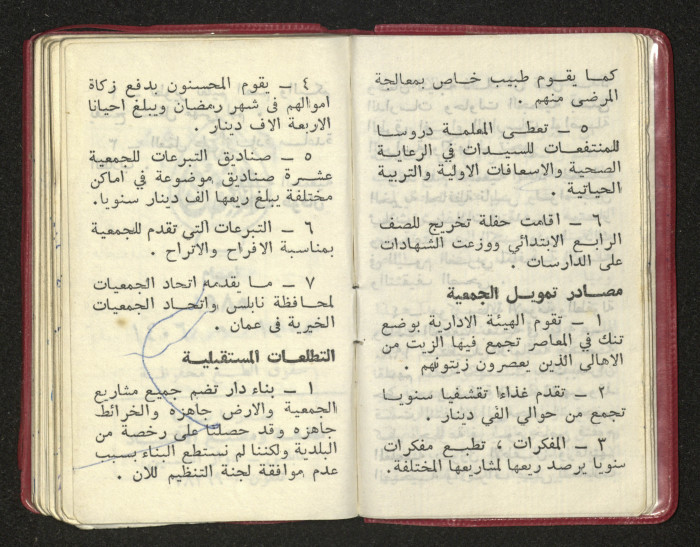 كما يقوم طبيب خاص بمعالجة
المرضى منهم .
٥ — تعطى المعلمة دروسا
للمنتفعات للسيدات في الرعاية
الصحية والاسعافات الاولية والتربية
الحياتية .
٦ — اقامت حفلة تخريج للصف
الرابع الابتدائي ووزعت الشهادات
على الدارسات .
مصادر تمويل الجمعية
١ — تقوم الهيئة الادارية بوضع
تنك في المعاصر تجمع فيها الزيت من
الاهالى الذين يعصرون زيتونهم .
٢ — تقدم غذاءا تقشفيا سنويا
تجمع من حوالي الفي دينار .
٣ — المفكرات ، تطبع مفكرات
سنويا يرصد ريعها لمشاريعها المختلفة.
٤ — يقوم المحسنون بدفع زكاة
اموالهم فى شهر رمضان ويبلغ احيانا
الاربعة الاف دينار .
٥ — صناديق التبرعات للجمعية
عشرة صناديق موضوعة في اماكن
مختلفة يبلغ ريعها الف دينار سنويا.
٦ — التبرعات التي تقدم للجمعية
بمناسبة الافراح والاتراح .
٧ — ما يقدمه اتحاد الجمعيات
لمحافظة نابلس واتحاد الجمعيات
الخيرية في عمان .
التطلعات المستقبلية
١ — بناء دار تضم جميع مشاريع
الجمعية والارض جاهزه والخرائط
جاهزه وقد حصلنا على رخصة من
البلدية ولكننا لم نستطع البناء بسبب
عدم موافقة لجنة التنظيم للان .